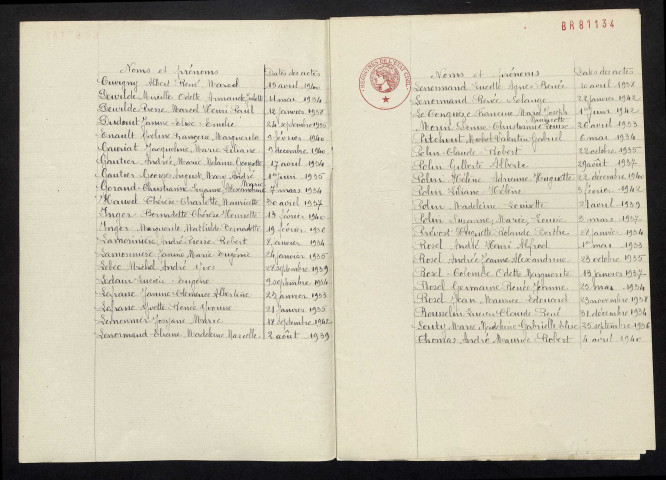 Noms et prénoms Dates des actes
Cuvigny Albert René Marcel 19 avril 1940
Dewilde Mireille Odette Armande 11 mai 1934
Dewilde Pierre Marcel Henri Paul 12 janvier 1938
Jeanne Elise Emilie 24 septembre 1935
Enault Yveline Françoise Marguerite 9 février 1940
Gauriat Jacqueline Marie Liliane 9 décembre 1940
Gautier André Marie Georgette 17 avril 1934
Gautier Georges August Marie André 1er juin 1935
Gérand Christiane Suzanne Marie Alexandrine 7 mars 1934
Hamel Thérèse Charlotte Henriette 30 avril 1937
Inger Bernadette Thérèse Henriette 13 février 1940
Inger Marguerite Mathilde Bernadette 19 février 1940
Lamonnière André Pierre Robert 8 janvier 1934
Lamonnière Jeanne Marie Eugénie 24 janvier 1935
Michel André Yves septembre 1939
Lucien Eugène 9 septembre 1934
Lefranc Jeanne Clémence Albertine 23 janvier 1933
Lefranc Yvette Renée Yvonne 21 janvier 1935
Lemonnier Josyane Marie 18 septembre 1942
Lenormand Eliane Madeleine Marcelle 2 août 1939
BR81134
Noms et prénoms Dates des actes
Lenormand Lucette Agnès Renée 10 avril 1938
Lenormand Renée Solange 22 janvier 1942
Francine Marie Joseph 1er juin 1942
Huguette
Morin Denise Christianne Louise 20 avril 1933
Michel Valentin Gabriel 6 mai 1934
Polin Claude Robert 22 octobre 1935
Polin Gilberte Alberte 29 août 1937
Polin Hélène Adrienne Huguette 22 décembre 1940
Polin Liliane Hélène 3 février 1942
Polin Madeleine Louisette 2 avril 1939
Polin Suzanne Marie Louise 3 mars 1937
Prévost Huguette Rolande Berthe 28 janvier 1934
Rosel André Henri Alfred 1er mai 1933
Rosel Andrée Jeanne Alexandrine 23 octobre 1935
Rosel Colombe Odette Marguerite 13 janvier 1937
Rosel Germaine Renée Jeanne 25 mai 1934
Rosel Jean Maurice Edouard 23 novembre 1938
Rousselin Lucien Claude René 31 décembre 1934
Marie Madeleine Gabrielle Elise 25 septembre 1936
Thomas André Maurice Robert 4 avril 1940